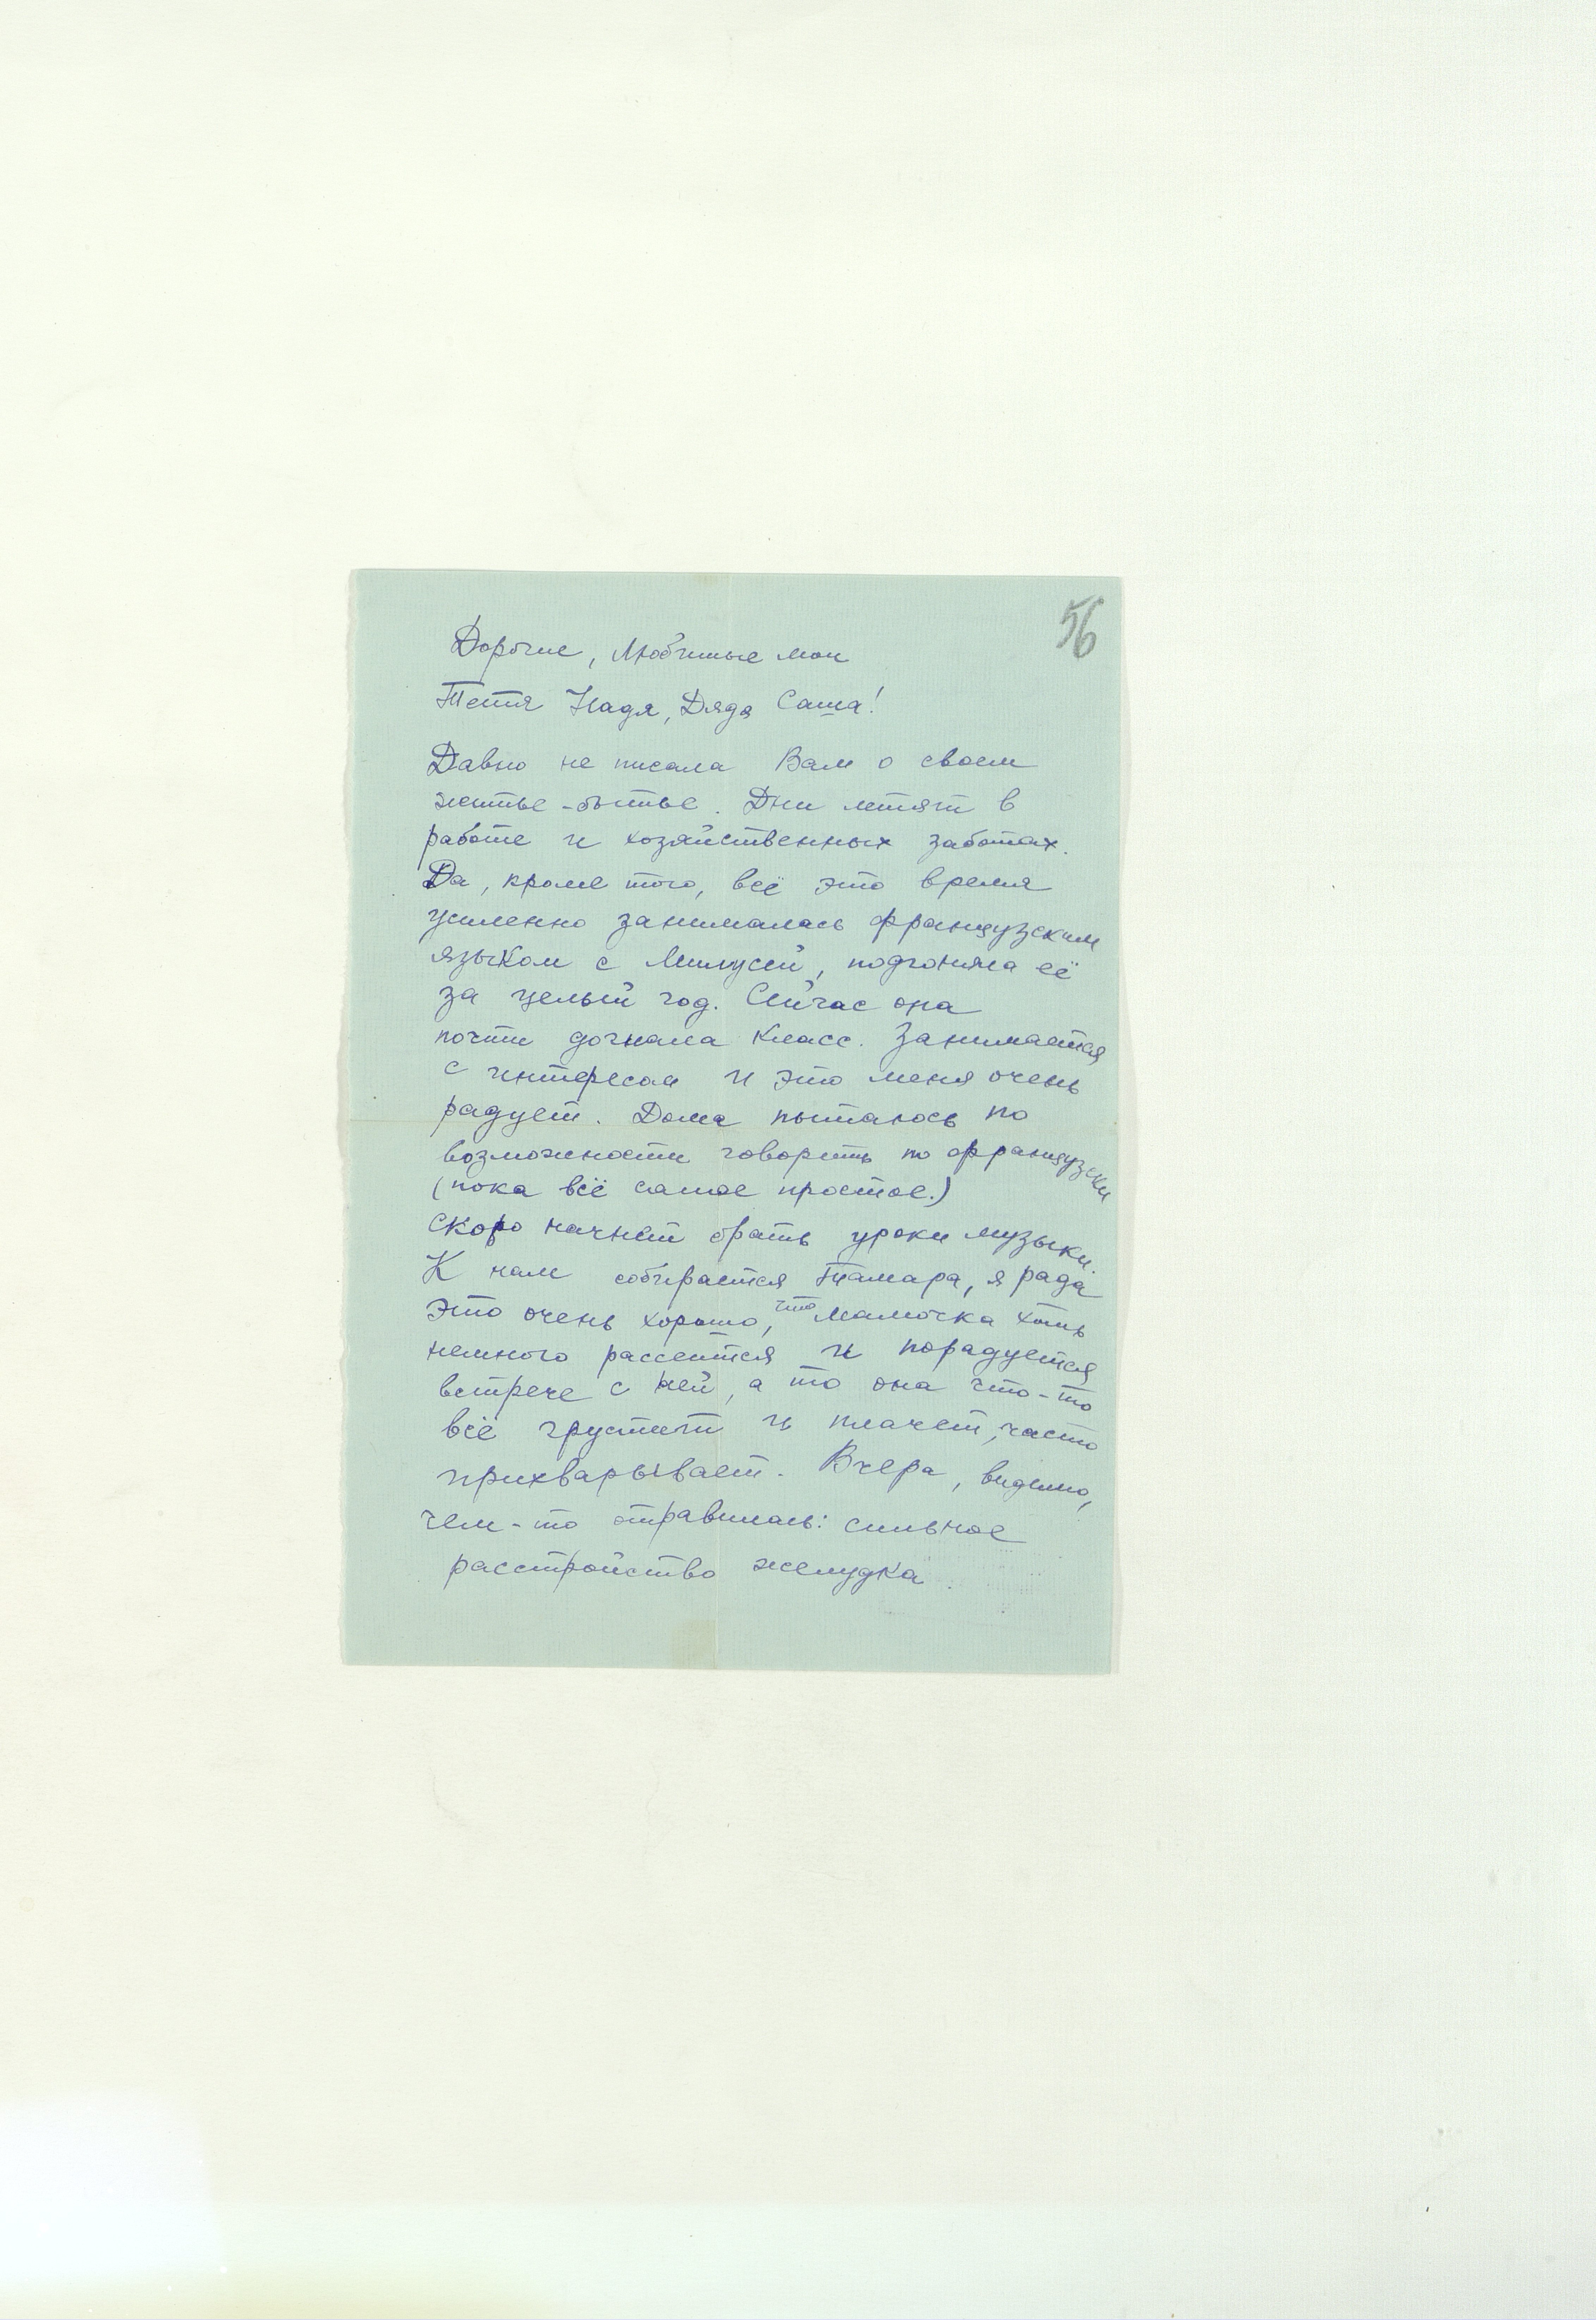 56
Дорогие, Любимые мои
Тётя Надя, Дядя Саша!
Давно не писала Вам о своем
житье-бытье. Дни летят в
работе и хозяйственных заботах.
Да, кроме того, всё это время
усиленно занималась французским
языком с Милусей, подгоняла её
за целый год. Сейчас она
почти догнала класс. Занимается
с интересом и это меня очень
радует. Дома пытаюсь по
возможности говорить по французски
(пока всё самое простое.)
Скоро начнёт брать уроки музыки.
К нам собирается Тамара, я рада
Это очень хорошо, что Мамочка хоть
немного рассеится и порадуется
встрече с ней, а то она что-то
всё грустит и плачет, часто
прихварывает. Вчера, видимо,
чем-то отравилась: сильное
расстройство желудка.